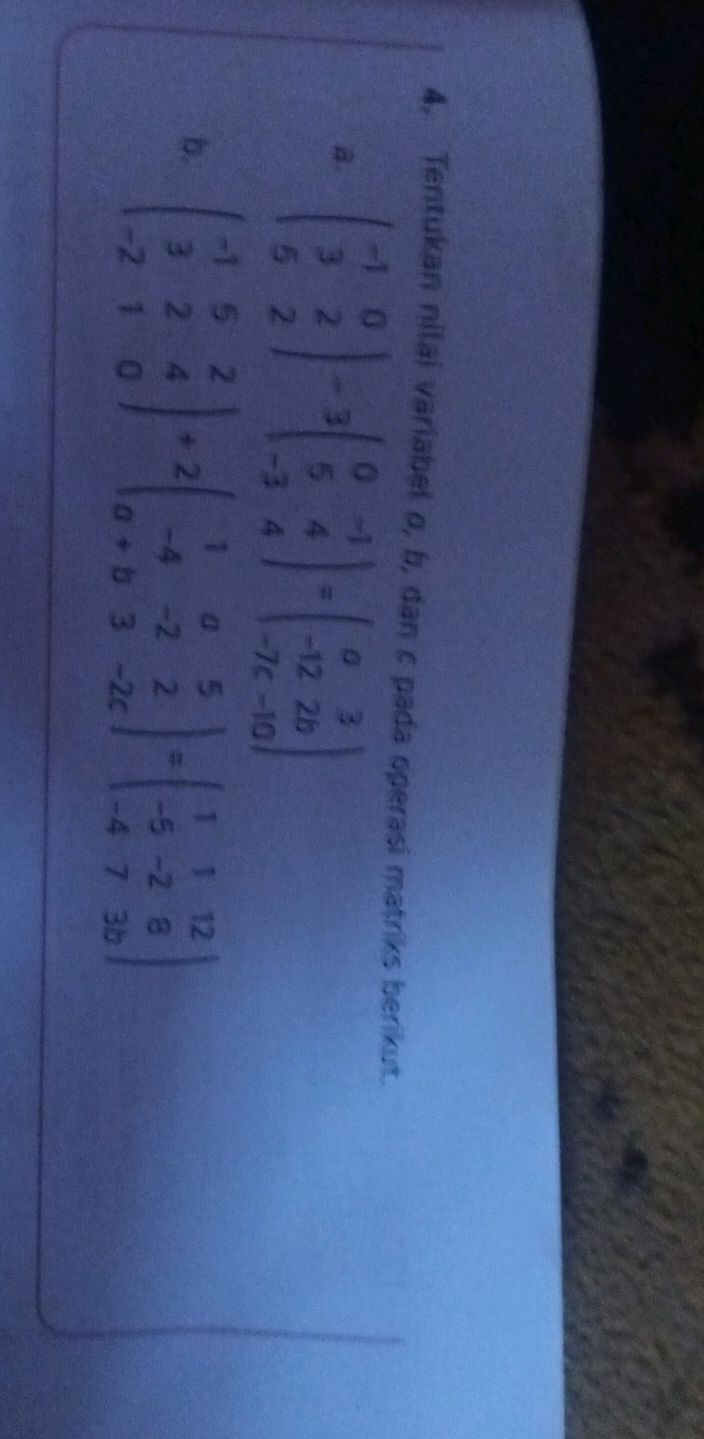 4. Tentukan nilai variabel a, b, dan c pada operasi matriks berikut.
a. (-1 0
3 2
5 2) - 3 (0 -1
5 4
-3 4) = (a 3
-12 2b
-7c -10)
b. (-1 5 2
3 2 4
-2 1 0) + 2 (1 a 5
-4 -2 2
a + b 3 -2c) = (1 1 12
-5 -2 8
-4 7 3b)